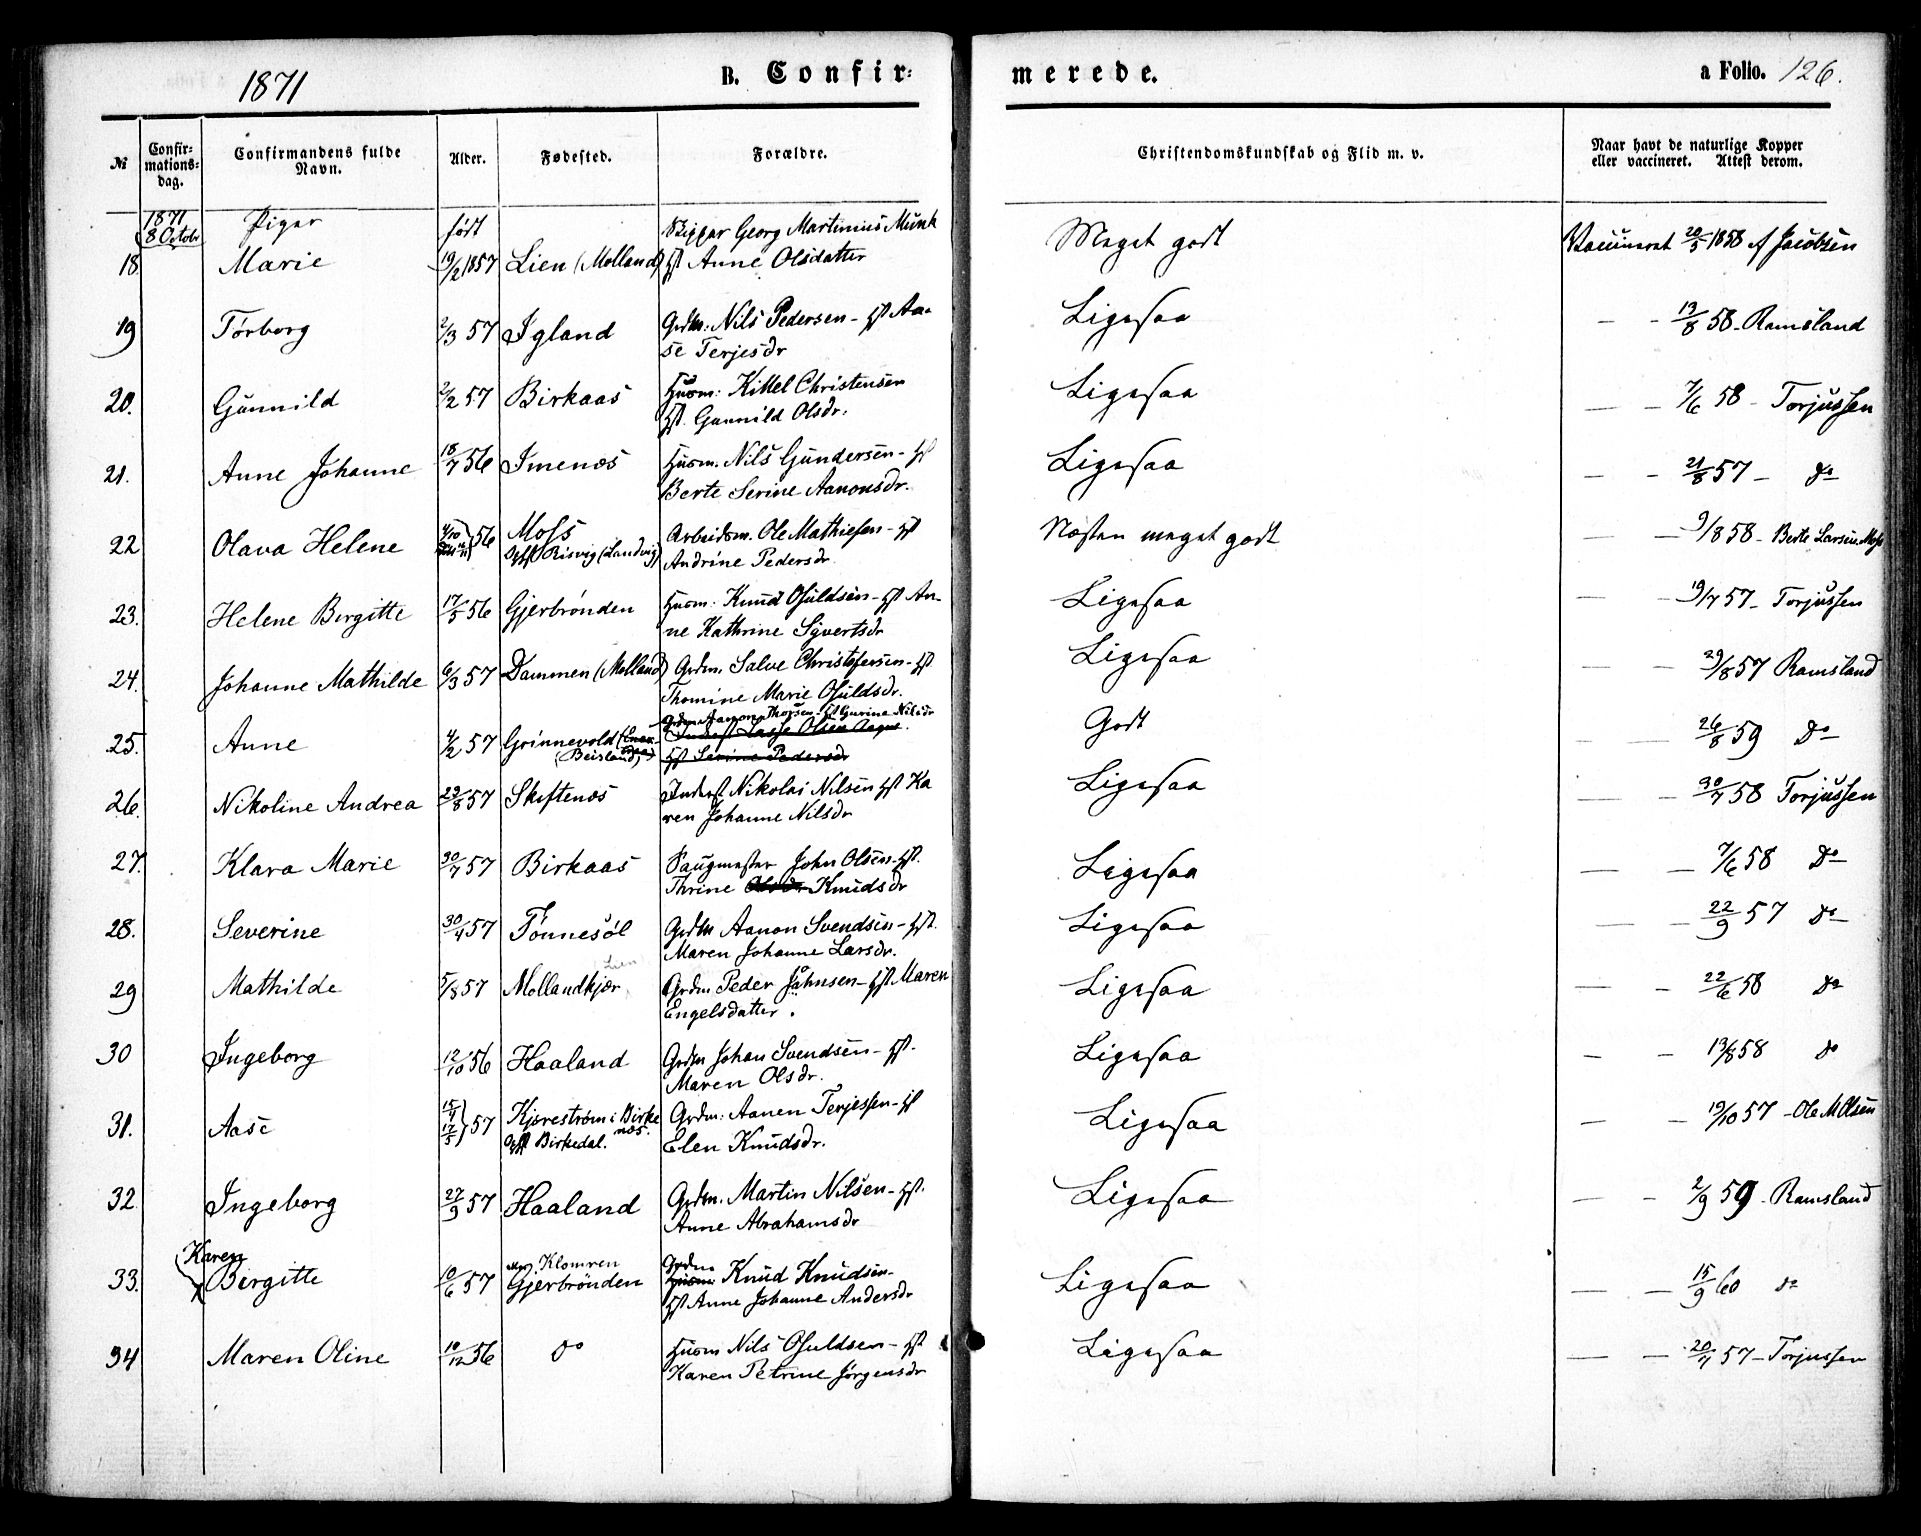 1871 B. Confir- merede. a Folio. 126.
№ Confir-mations-dag. Confirmandens fulde Navn. Alder. Fødested. Forældre. Christendomskundskab og Flid m. v. Naar havt de naturlige Kopper eller vaccineret. Attest derom.
1871 8 Octobr Piger født
18 Marie 19/2 1857 Lien (Molland) Skipper Georg Martinius Munk Hst Anne Olsdatter Meget godt Vaccineret 20/5 1858 af Jacobsen
19 Torborg 2/3 57 Igland Grdm: Nils Pedersen - Hst Aa-
se Terjesdr Ligesaa — - 13/8 58 - Ramsland
20. Gunnild 2/2 57 Birkaas Husm: Kittel Christensen
Hst. Gunnild Olsdr. Ligesaa — — 7/6 58 - Torjussen
21. Anne Johanne 18/7 56 Imenes Husm. Nils Gundersen - Hst
Berte Serine Aanonsdr. Ligesaa — - 21/8 57 - do
22 Olava Helene 4/10 56 Moss
Opf Risvig (Landvig) Arbeidsm. Ole Mathiesen - Hst
Andrine Pedersdr Næsten meget godt — — 9/8 58 - Berte Larsen. Moss
23. Helene Birgitte 17/5 56 Gjerbrønden Husm: Knud Osuldsen - Hst An-
ne Kathrine Syvertsdr Ligesaa — — 19/7 57 - Torjussen
24. Johanne Mathilde 6/3 57 Dammen (Molland) Grdm. Salve Christofersen - Hst
Thomine Marie Osuldsdr. Ligesaa — — 29/8 57 Ramsland
25. Anne 4/2 57 Grinnevold
(Beisland) Grdm Aanon Thorsen - Hst Gurine Nilsdr
Inderst Lasse Olsen Aagre.
Hst Serine Pedersdr Godt - — 26/8 59 Do
26. Nikoline Andrea 29/8 57 Skiftenes Inderst Nikolai Nilsen Hst Ka
ren Johanne Nilsdr Ligesaa — — 30/7 58 Torjussen
27. Klara Marie 30/7 57 Birkaas Saugmester John Olsen - Hst.
Thrine Olsdr Knudsdr Ligesaa — — 7/6 58 Do
28. Severine 30/4 57 Tønnesøl Grdm Aanon Svendsen - Hst.
Maren Johanne Larsdr. Ligesaa — — 22/9 57 do
29 Mathilde 5/8 57 Lien Mollandkjær Grdm Peder Jahnsen - Hst Maren
Engelsdatter. Ligesaa — - 22/6 58 do
30 Ingeborg 12/10 56 Haaland Grdm Johan Svendsen - Hst.
Maren Olsdr. Ligesaa - - 13/8 58 do
31. Aase 15/4 12/5 57 Kjørestrøm i Birke
nes.
Opf Birkedal. Grdm: Aanen Terjessen - Hst
Elen Knudsdr. Ligesaa - - 19/10 57 - Ole M Olsen
32. Ingeborg 27/9 57 Haaland Grdm. Martin Nilsen - Hst.
Anne Abrahamsdr Ligesaa — - 2/9 59 - Ramsland
33. Karen Birgitte 10/6 57 Klomren
Gjerbrønden Grdm
Husm: Knud Knudsen -
Hst Anne Johanne Andersdr Ligesaa — — 15/9 60 do
34 Maren Oline 10/12 56 do Husm Nils Osuldsen - Hst
Karen Petrine Jørgensdr Ligesaa — — 20/7 57 - Torjussen